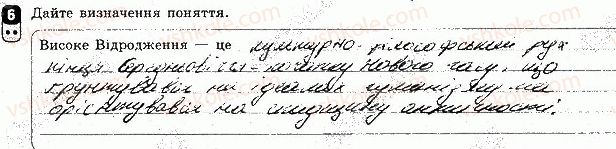 6 Дайте визначення поняття.
Високе Відродження — це культурно-філософський рух
кінця Середньовіччя - початку Нового часу, що
ґрунтувався на ідеалах гуманізму та
орієнтувався на спадщину античності.